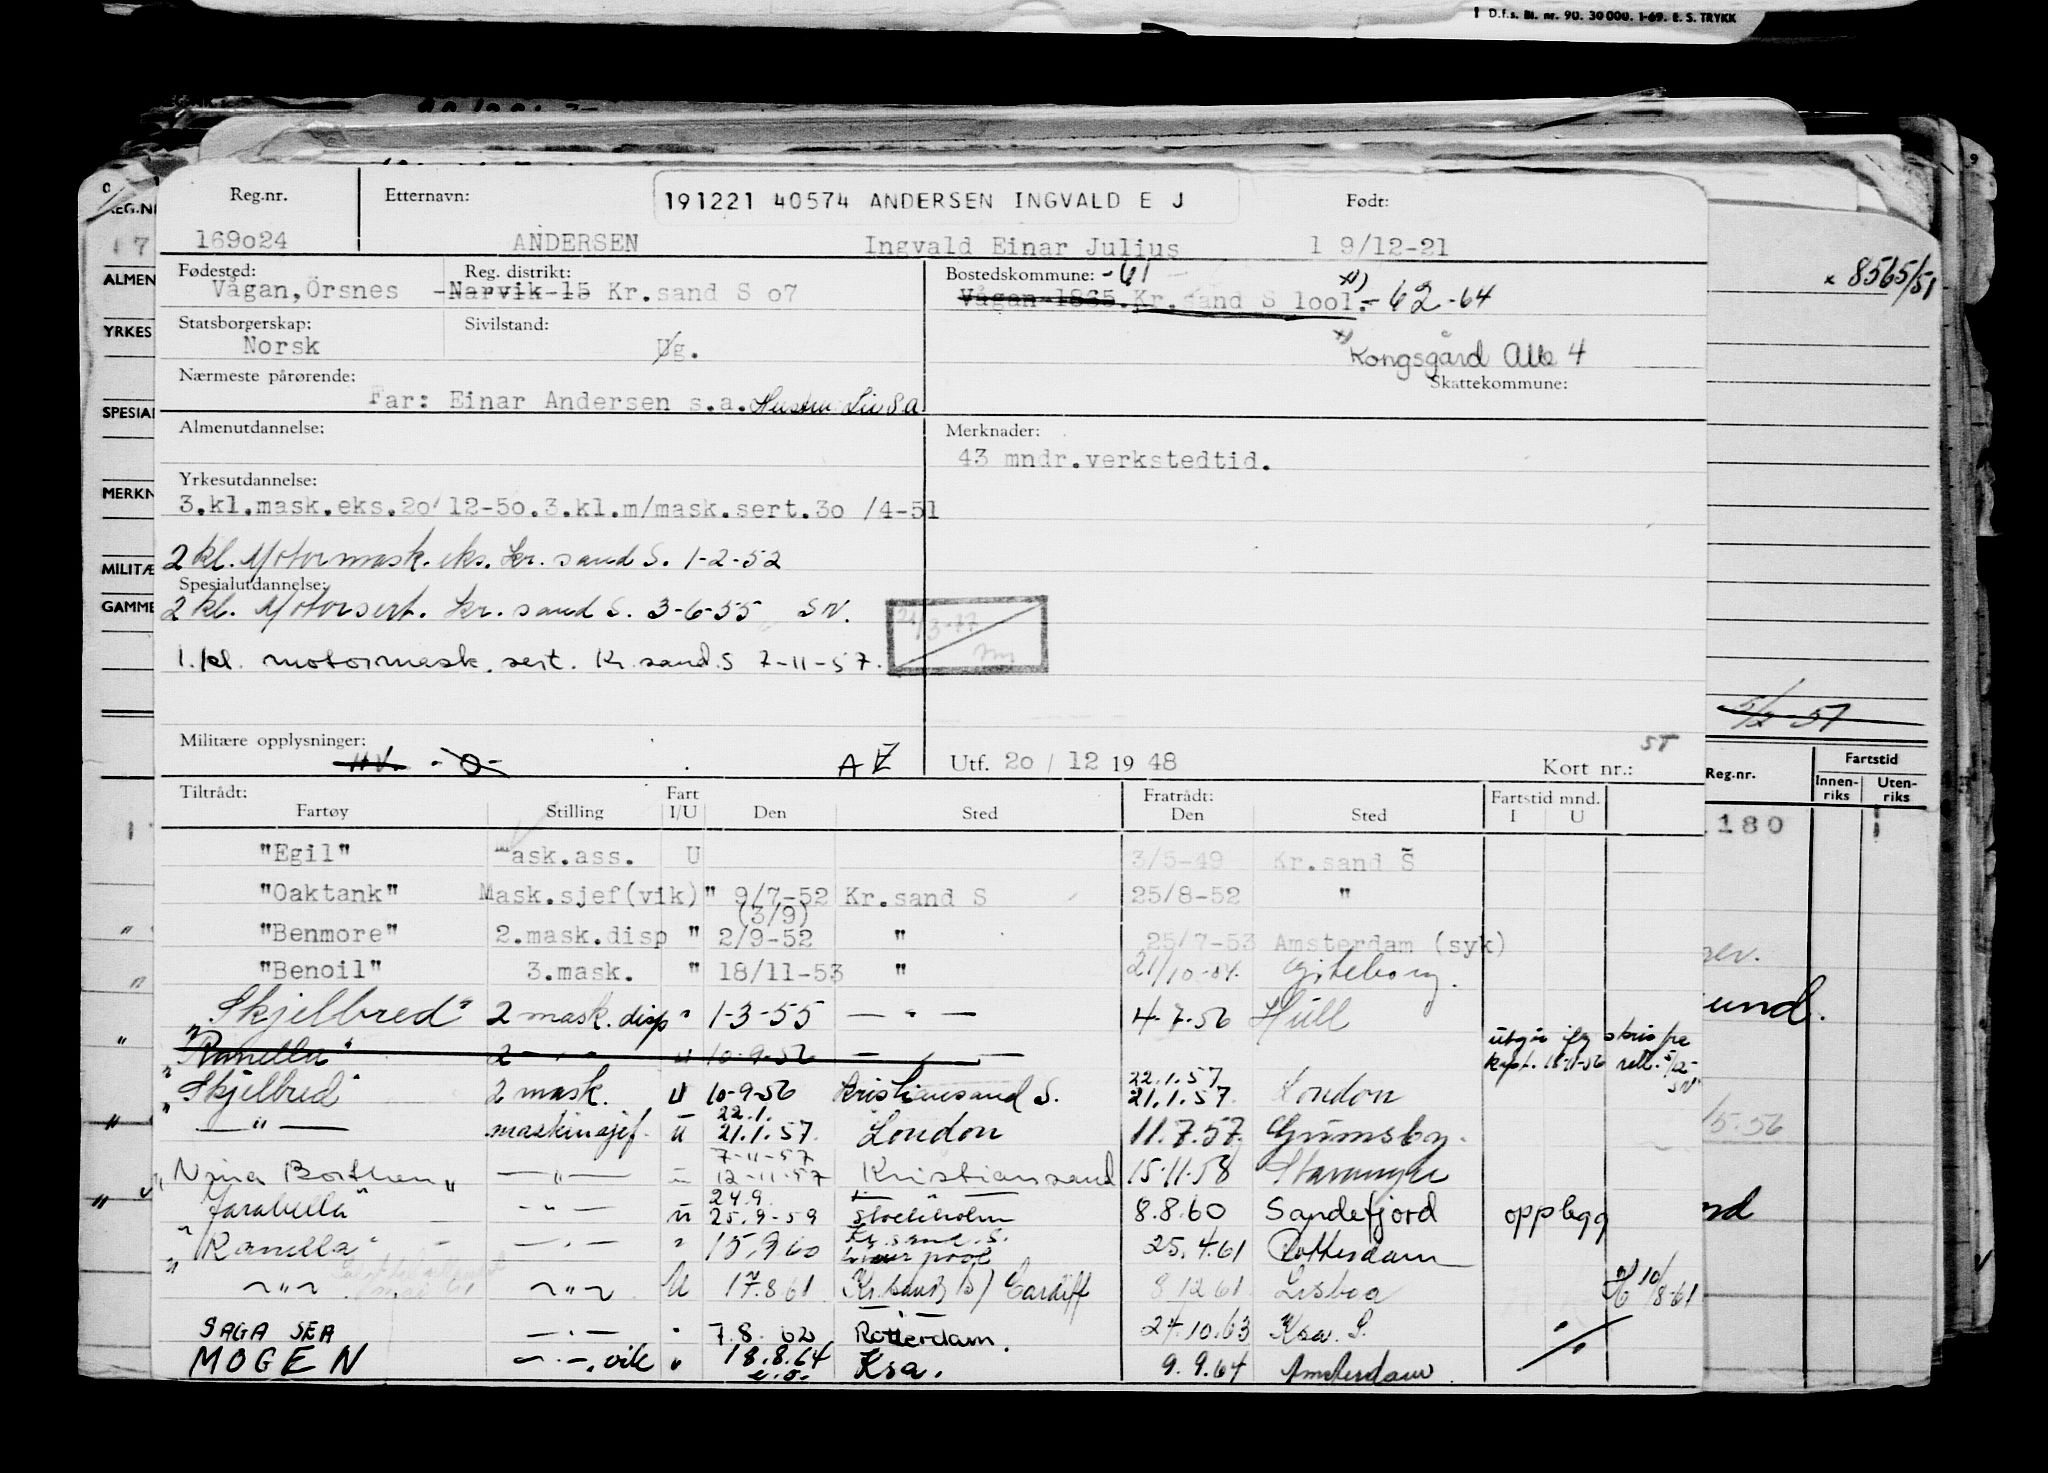 1 D.f.s. Bl. nr. 90. 30 000. 1-69. E. S. TRYKK
Reg.nr. Etternavn: 191221 40574 ANDERSEN INGVALD E J Født:
169o24 ANDERSEN Ingvald Einar Julius 1 9/12-21
Fødested: Reg. distrikt: Bostedskommune: -61 x)
Vågan, Örsnes -Narvik-15 Kr.sand S o7 Vågan-1865. Kr.sand S 1oo1.- 62-64
Statsborgerskap: Sivilstand:
Norsk Ug. x) Kongsgård Alle 4
Nærmeste pårørende: Skattekommune:
Far: Einar Andersen s.a. Hustru: Liv S.A
Almenutdannelse: Merknader:
43 mndr.verkstedtid.
Yrkesutdannelse:
3.kl.mask.eks.2o/12-5o.3.kl.m/mask.sert.3o /4-51
2 kl. Motormask. eks. Kr. sand S. 1-2-52
Spesialutdannelse:
2 kl. Motorsert. Kr. sand S. 3-6-55 SN.
1. kl. motormask. sert. Kr. sand. S 7-11-57.
Militære opplysninger: H.V. -O- A Utf. 2o / 12 19 48 Kort nr.: ST
Tiltrådt: Fart Fratrådt: Fartstid mnd.
Fartøy Stilling I/U Den Sted Den Sted I U
"Egil" Mask.ass. U 3/5-49 Kr.sand S
"Oaktank" Mask.sjef(vik) " 9/7-52 Kr.sand S 25/8-52 "
(3/9)
"Benmore" 2.mask.disp " 2/9-52 " 25/7-53 Amsterdam (syk)
"Benoil" 3.mask. " 18/11-53 " 21/10-54. Göteborg.
"Skjelbred" 2 mask. disp " 1-3-55 — " — 4-7-56 Hull
"Ranella" 2 — " — U 10-9-56 — " — utgår ifg skriv fra
kapt. 18-11-56 rell. 5/12- SN
"Skjelbred" 2 mask. U 10-9-56 Kristiansand S. 22.1.57 21.1.57. London
— " — maskinsjef. U 22.1. 21.1.57. London 11.7.57. Grimsby.
"Nina Borthen" — " — 7-11-57 12-11-57 Kristiansand 15.11.58 Stavanger
"Jarabella" — " — U 24.9. 25.9-59 Stockholm 8.8.60 Sandefjord opplegg
"Ranella" — " — " 15.9 60 Kr. sand. S. Liverpool 25.4.61 Rotterdam
— " — — " — U 17.8.61 Kr.sand S / Cardiff 8 12 61 Lisboa 10/8-61
SAGA SEA — " — " 7.8. 62 Rotterdam. 27.10.63 Ksa. S.
MOGEN — " —, vik " 18.8.64 Ksa. 9.9.64 Amsterdam
e.o.
REG.NR
ALMEN
YRKES
SPESIAL
MERKN
MILITÆ
GAMME
x 8565/51
5/2-57
Reg.nr. Fartstid
Innen-riks Uten-riks
180